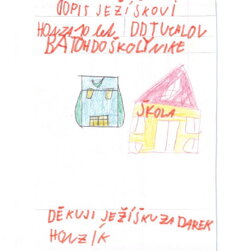 DOPIS JEŽÍŠKOVI
HONZA 10 let DD TUCHLOV
BATOH DO ŠKOLY NIKE
ŠKOLA
DĚKUJI JEŽÍŠKU ZA DAREK
HONZÍK